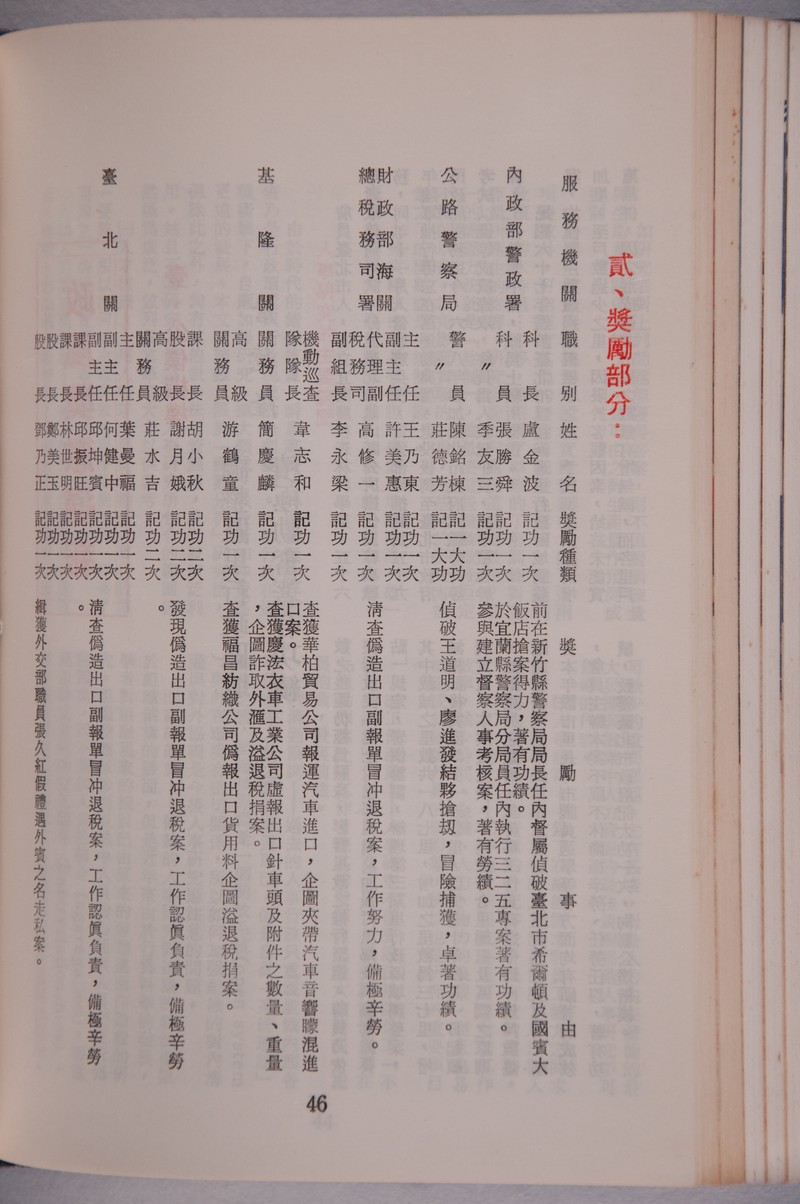 貳、獎勵部分：
服務機關 職別 姓名 獎勵種類 獎勵事由
內政部警政署 科長 盧金波 記功一次 前在新竹縣警察局局長任內督屬偵破臺北市希爾頓及國賓大
飯店搶案得力，著有功績。
科員 張勝舜 記功一次 於宜蘭縣警察局分局員任內執行三二五專案著有功績。
〃 季友三 記功一次 參與建立督察人事考核案，著有勞績。
公路警察局 警員 陳銘棟 記一大功 偵破王道明、廖進發結夥搶刼，冒險捕獲，卓著功績。
〃 莊德芳 記一大功
財政部海關
總稅務司署
主任 王乃東 記功一次
副主任 許美惠 記功一次
代理副
稅務司 高修一 記功一次 淸查僞造出口副報單冒冲退稅案，工作努力，備極辛勞。
副組長 李永梁 記功一次
基隆關 機動巡查
隊隊長 韋志和 記功一次 查獲華柏貿易公司報運汽車進口，企圖夾帶汽車音響矇混進
口案。
關務員 簡慶麟 記功一次 查獲慶浤衣車工業公司虛報出口針車頭及附件之數量、重量
，企圖詐取外滙及溢退稅捐案。
高級
關務員 游鶴童 記功一次 查獲福昌紡織公司僞報出口貨用料企圖溢退稅捐案。
臺北關 課長 胡小秋 記功二次
股長 謝月娥 記功二次 發現僞造出口副報單冒冲退稅案，工作認眞負責，備極辛勞
。
高級
關務員 莊水吉 記功二次
主任 葉曼福 記功一次
副主任 何健中 記功一次
副主任 邱坤賓 記功一次 淸查僞造出口副報單冒冲退稅案，工作認眞負責，備極辛勞
。
課長 邱振旺 記功一次
課長 林世明 記功一次
股長 鄭美玉 記功一次
股長 鄧乃正 記功一次 緝獲外交部職員張久紅假禮遇外賓之名走私案。
46